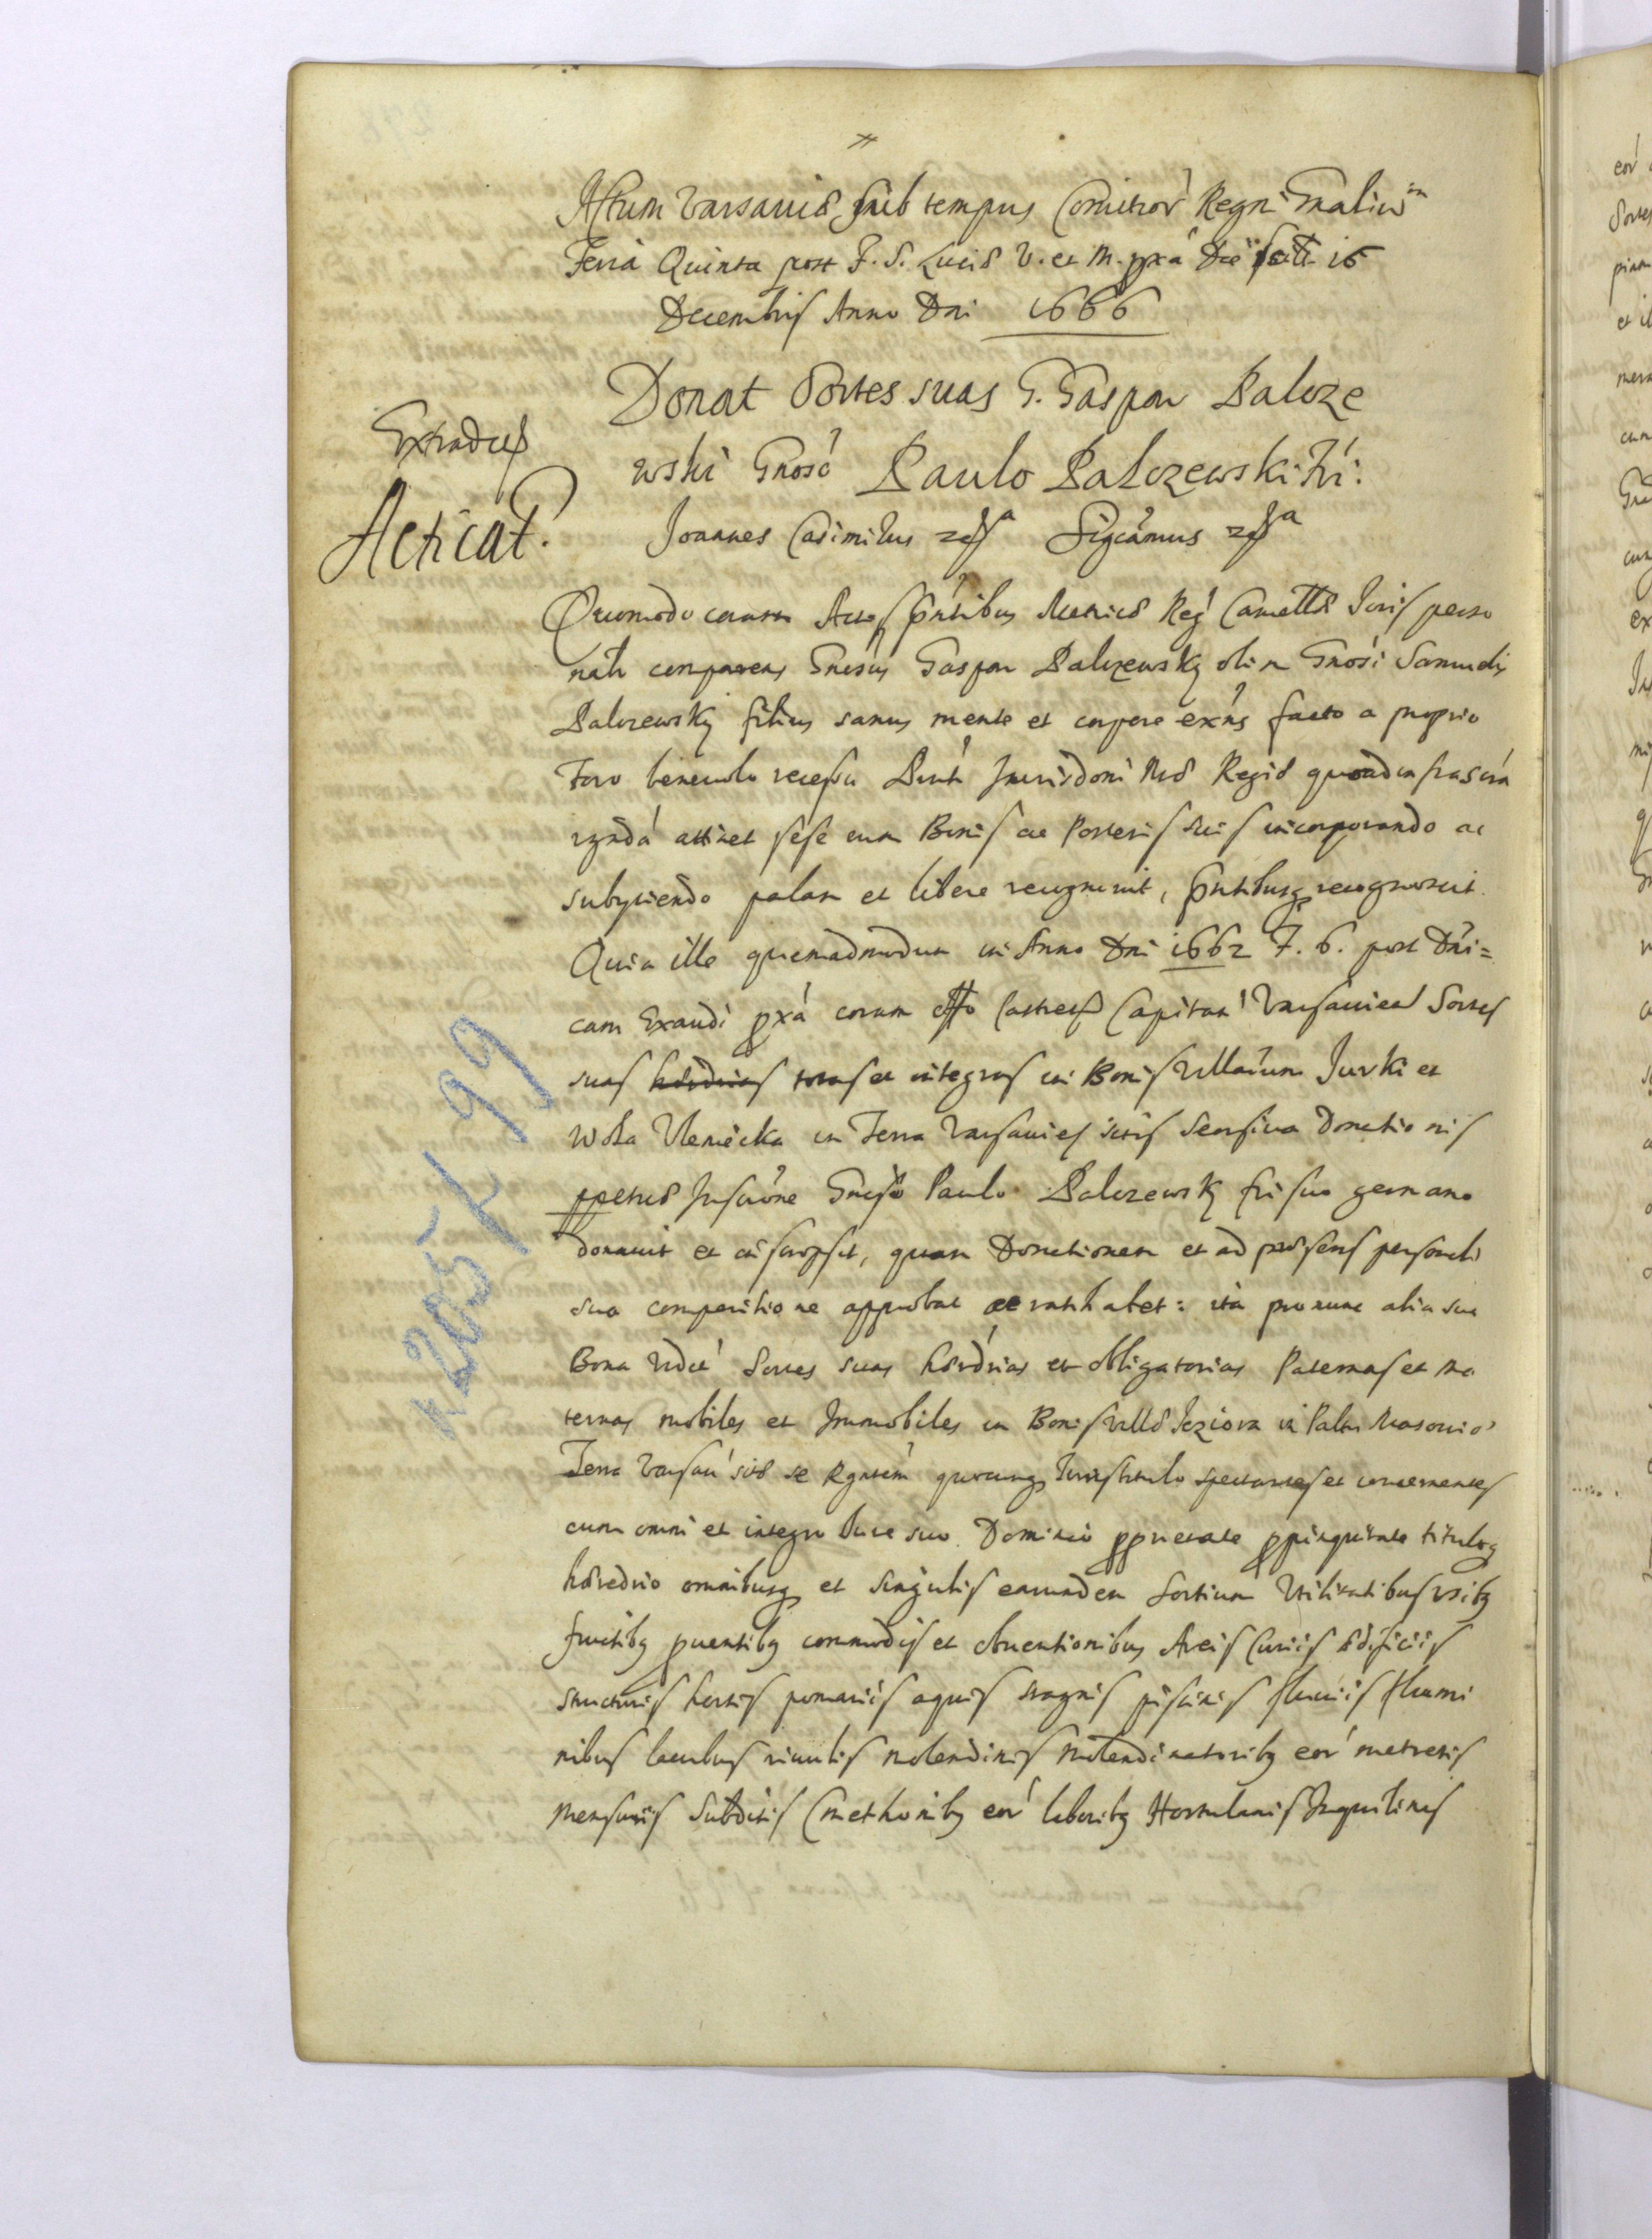 Actum Varsauiæ sub tempus Comitior' Regni Gnaliu'm
Feria Quinta post F. S. Luciæ V. et M. pxa' Die scilt. 16
Decembris Anno Dni 1666
Donat Sortes suas G. Gaspar Palcze
wski Gnoso' Paulo Palczewski Fri:
Extradit
Acticat.
Joannes Casimirus etca Sigcamus etca
Quomodo coram Actis pntibus Metrices Reg' Cancellæ Juris perso
nalr comparens Gnosus Gaspar Palczewsky olim Gnosi Samuelis
Palczewsky filius sanus mente et corpore exn's facto a proprio
Foro beneuolo recessu Pnti Jurisdoni Mtis Regiæ quoad infrascri
bnda' attinet sese cum Bonis ac Posteris suis incorporando ac
subyciendo palam et libere recognouit, pntibusq recognoscit.
Quia ille quemadmodum in Anno Dni 1662 F. 6. post Dni=
cam Exaudi pxa' coram Offo Castren Capitan' Varsauien Sortes
suas hæredrias totas et integras in Bonis Villarum Jurki et
Wola in Terra Varsauien sitis Donationis
ppetuæ Inscrone Gnoso Paulo Palczewsky fri suo germano
donauit et inscripsit, quam Donationem et ad præsens personali
sua comparitione approbat ac ratihabet: ita pro nunc alia sua
Bona vidct' Sortes suas hærdrias et obligatorias Paternas et ma
ternas mobiles et Immobiles in Bonis Villæ Jeziora in Paltu Masouiæ
Terra Varsau' sitæ se quocunq Juris titulo spectantes et concernentes
cum omni et integro Jure suo Dominio pprietate ppinquitate tituloq
hæredrio omnibusq et singulis earundem sortium Vtilitatibus vsibq
fructibq puentibq commodis et obuentionibus Areis Curiis ædificiis
structuris hortis pomariis aquis stagnis piscinis fluuiis flumi
nibus lacubus riuulis molendinis Molendinatoribq eor' metretis
mensuris Subditis Cmethonibq eor' laboribq Hortulanis Inquilinis
N 205 F 99